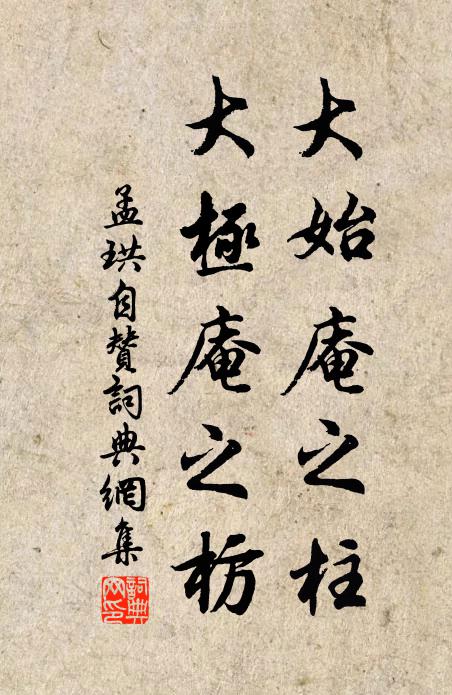 大始庵之柱
大極庵之枋
孟珙自贊詞典網集
詞典網印